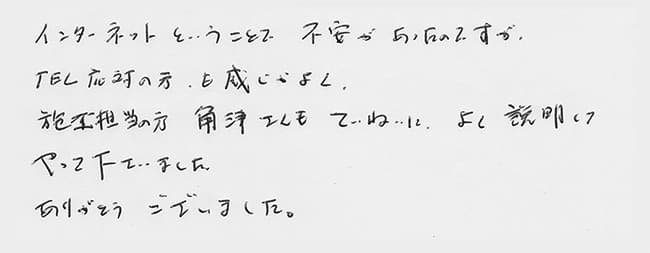 インターネットということで 不安があったのですが、
TEL応対の方も感じがよく、
施工担当の方 角津さんも ていねいに、よく説明して
やって下さいました
ありがとうございました。